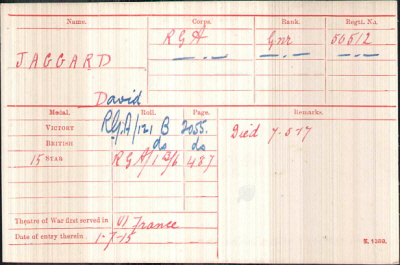 Name. Corps. Rank. Regtl. No.
JAGGARD R G A Gnr 50512
David
Medal. Roll. Page. Remarks.
VICTORY RGA/121 B 2055. Died 7.5.17
BRITISH do do
15 STAR R G A/1 B/6 487
Theatre of War first served in (1) France
Date of entry therein 1-7-15
K. 1380.